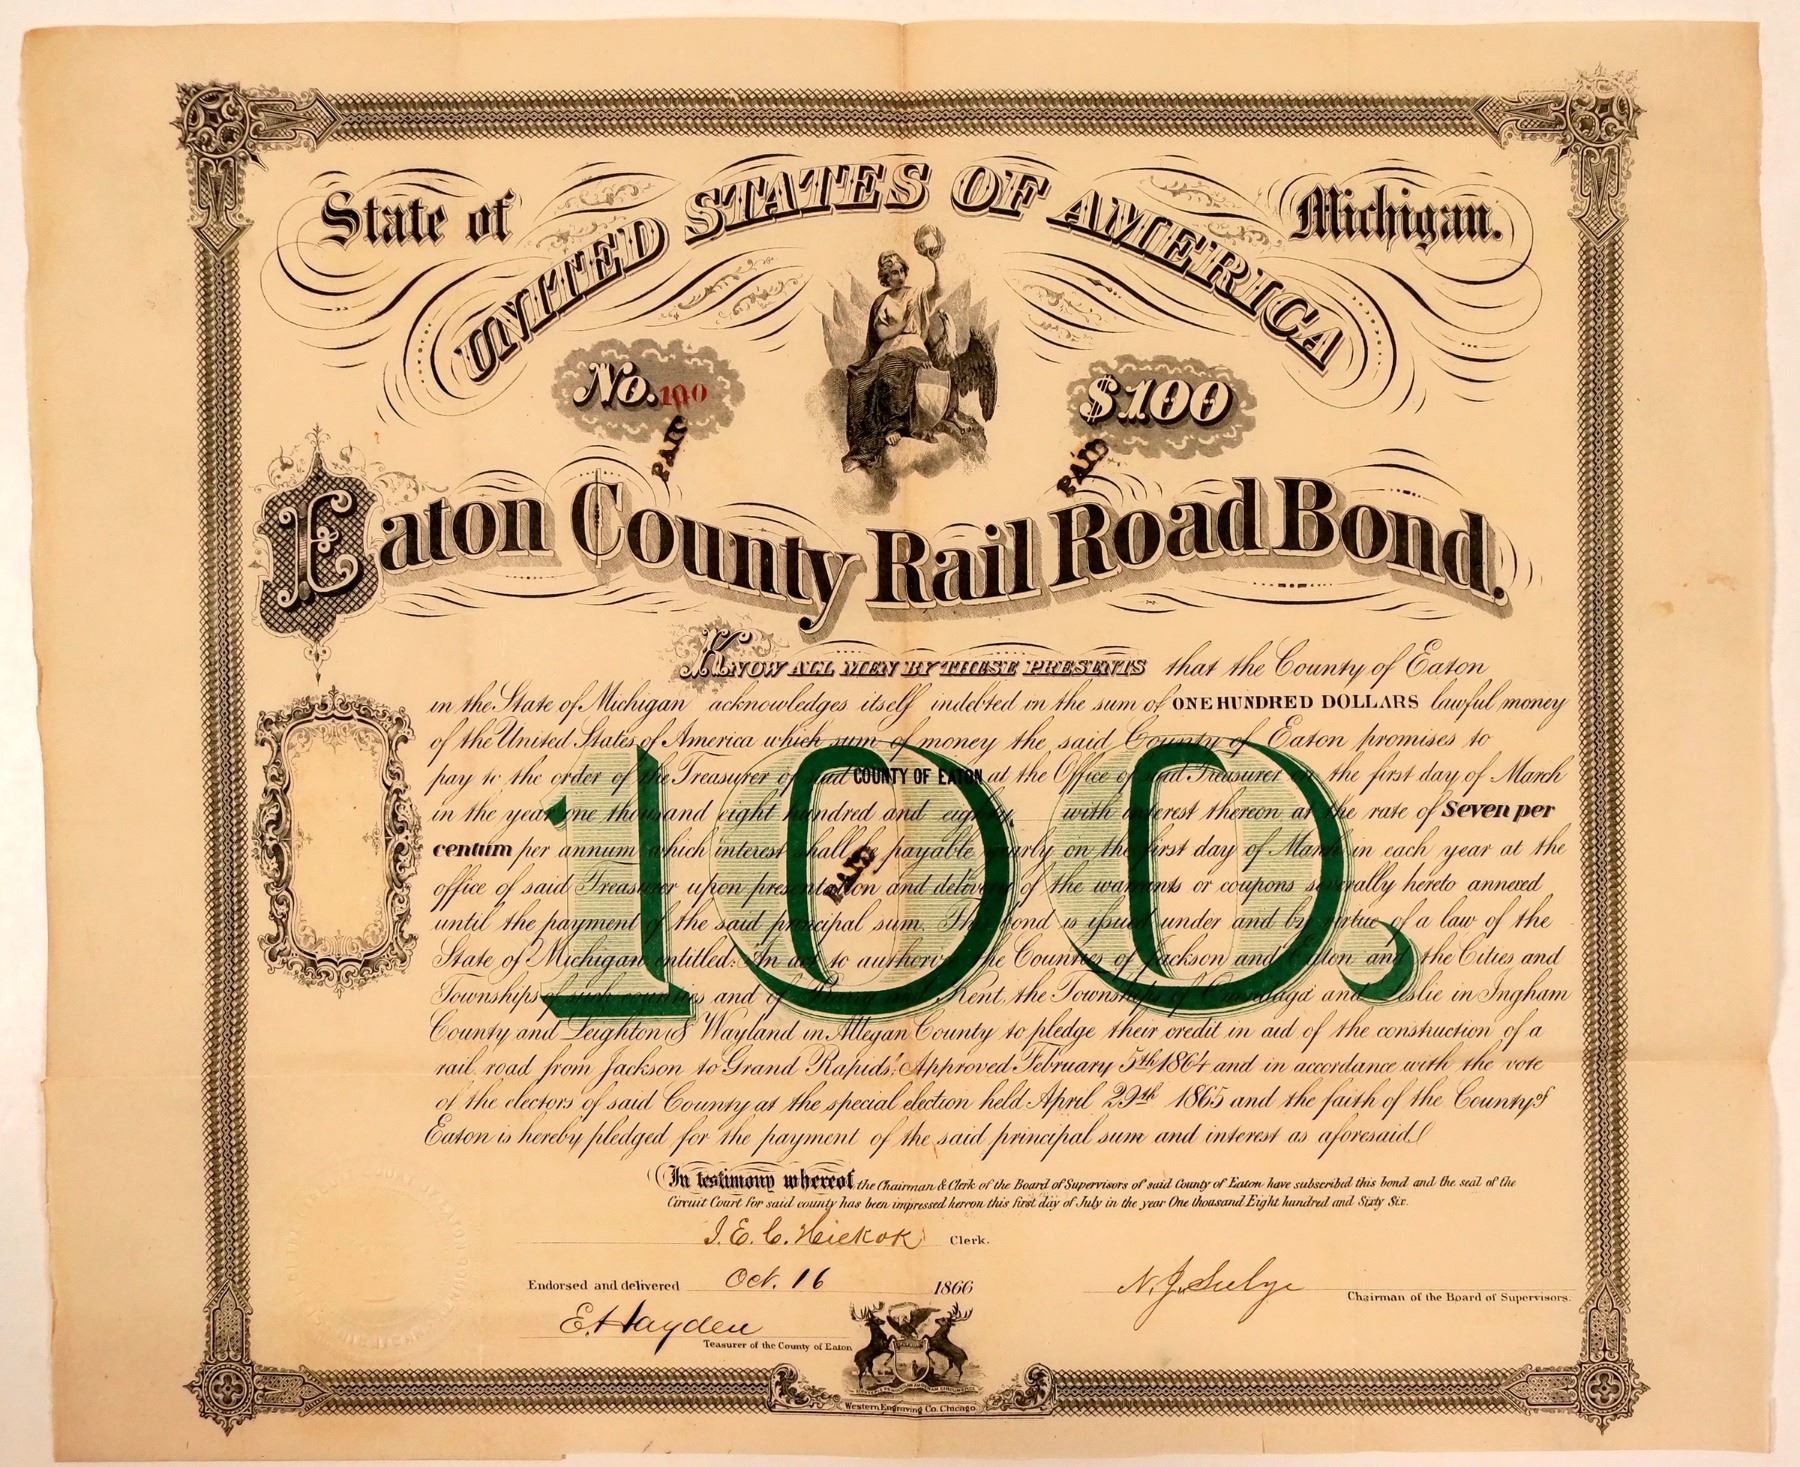 State of
Michigan.
UNITED STATES OF AMERICA
No. 100
$100
PAID
PAID
Eaton County Rail Road Bond.
KNOW ALL MEN BY THESE PRESENTS that the County of Eaton
in the State of Michigan acknowledges itself indebted in the sum of ONE HUNDRED DOLLARS lawful money
of the United States of America which sum of money the said County of Eaton promises to
pay to the order of the Treasurer of said COUNTY OF EATON at the Office of said Treasurer on the first day of March
in the year one thousand eight hundred and eighty, with interest thereon at the rate of Seven per
centum per annum which interest shall be payable yearly on the first day of March in each year at the
office of said Treasurer upon presentation and delivery of the warrants or coupons severally hereto annexed
until the payment of the said principal sum. This bond is issued under and by virtue of a law of the
State of Michigan entitled: An act to authorize the Counties of Jackson and Eaten and the Cities and
Townships of such counties and of Barry and Kent, the Townships of Onondaga and Leslie in Ingham
County and Leighton & Wayland in Allegan County to pledge their credit in aid of the construction of a
rail road from Jackson to Grand Rapids". Approved February 5th 1864 and in accordance with the vote
of the electors of said County at the special election held April 29th 1865 and the faith of the County of
Eaton is hereby pledged for the payment of the said principal sum and interest as aforesaid
100
PAID
In testimony whereof the Chairman & Clerk of the Board of Supervisors of said County of Eaton have subscribed this bond and the seal of the
Circuit Court for said county has been impressed herron this first day of July in the year One thousand Eight hundred and Sixty Six.
J. E. C. Hickok Clerk.
Endorsed and delivered Oct. 16 1866
Chairman of the Board of Supervisors.
E. Hayden
Teasurer of the County of Eaton
Western Engraving Co. Chicago